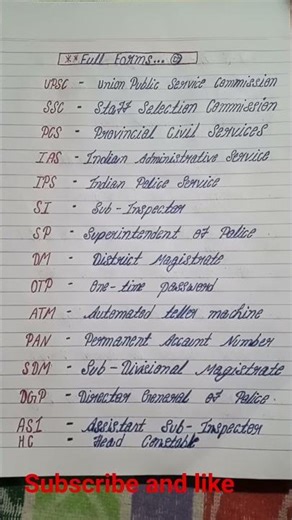 **Full Forms...
UPSC - Union Public Service Commission
SSC - Staff Selection Commission
PCS - Provincial Civil Services
IAS - Indian Administrative Service
IPS - Indian Police Service
SI - Sub-Inspector
SP - Superintendent of Police
DM - District Magistrate
OTP - One-time password
ATM - Automated teller machine
PAN - Permanent Account Number
SDM - Sub-Divisional Magistrate
DGP - Director General of Police
ASI - Assistant Sub-Inspector
HC - Head Constable
Subscribe and like